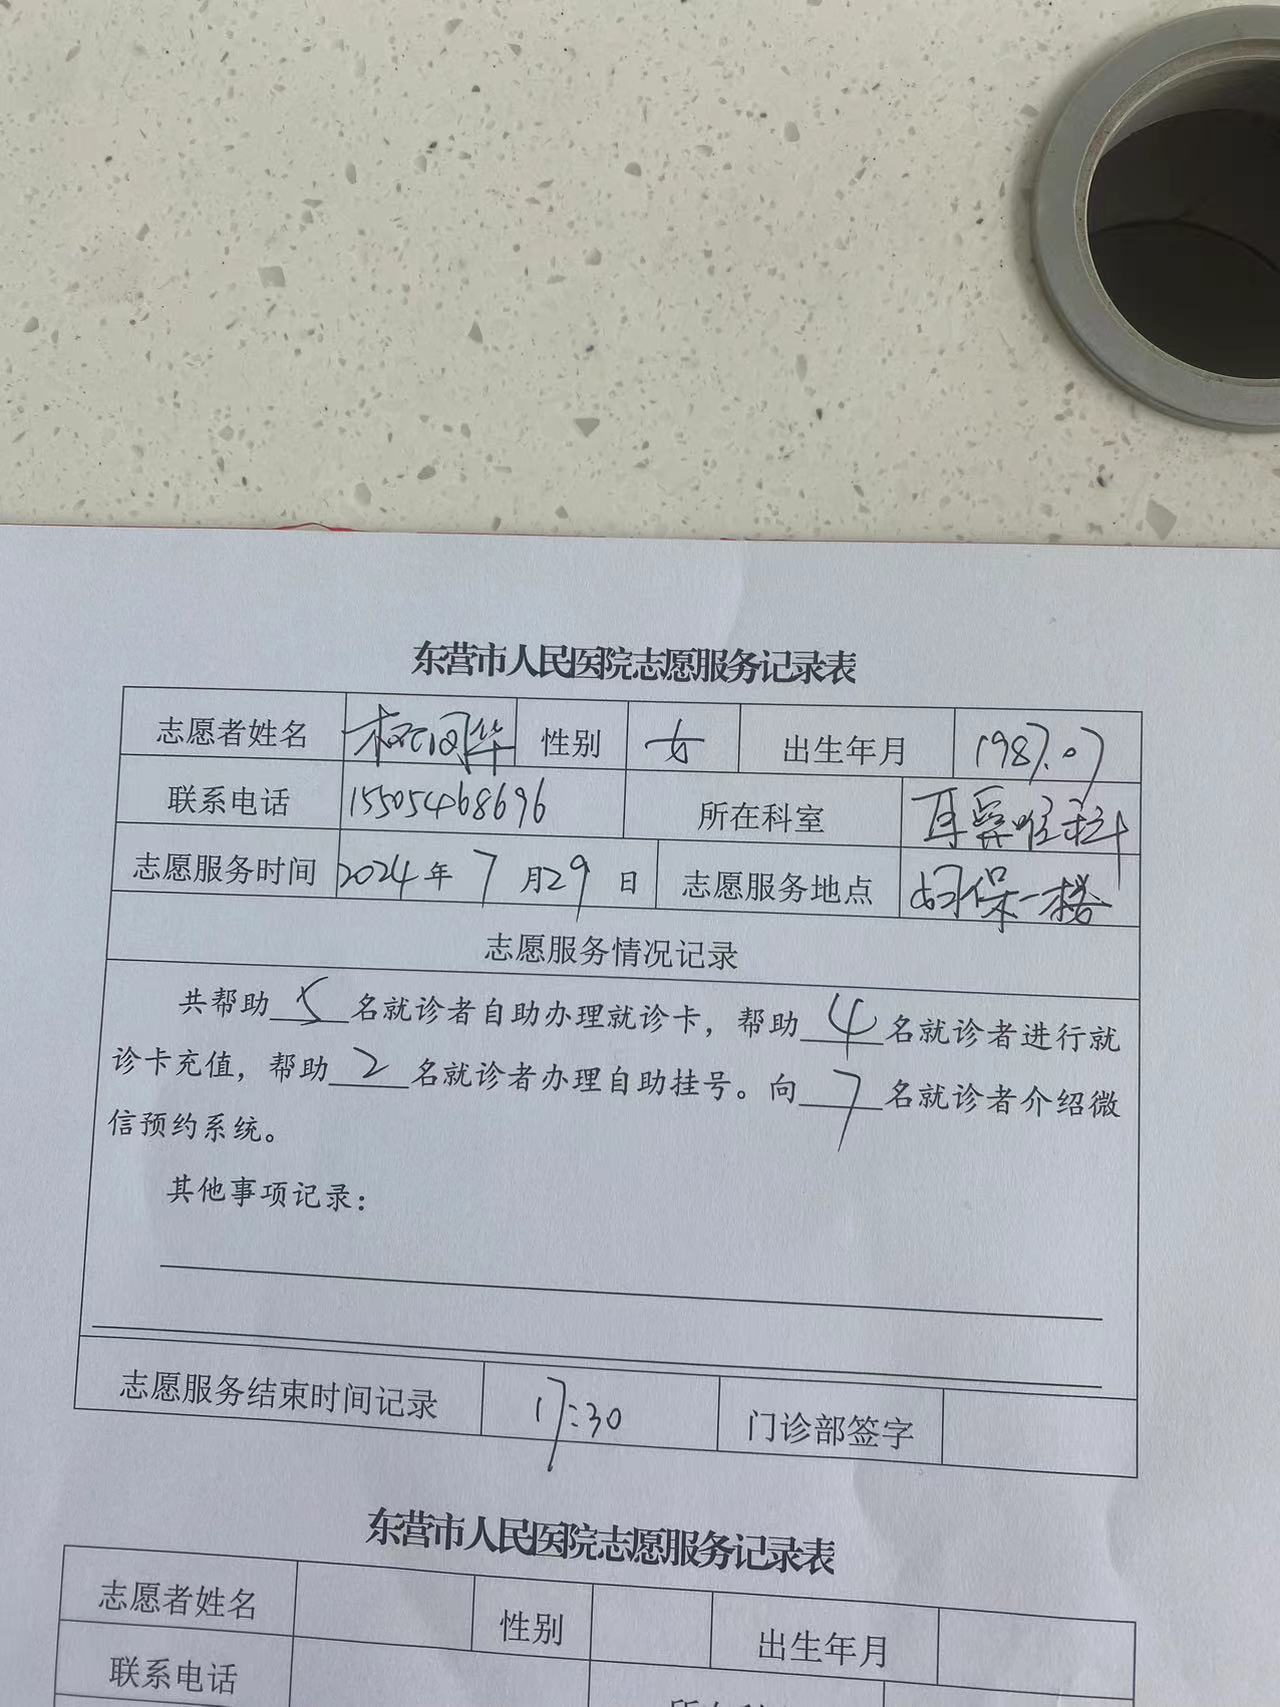 东营市人民医院志愿服务记录表
志愿者姓名 性别 女 出生年月 1987.07
联系电话 15505468696 所在科室 耳鼻喉科
志愿服务时间 2024年 7 月29 日 志愿服务地点 妇保一楼
志愿服务情况记录
共帮助 5 名就诊者自助办理就诊卡，帮助 4 名就诊者进行就
诊卡充值，帮助 2 名就诊者办理自助挂号。向 7 名就诊者介绍微
信预约系统。
其他事项记录：
志愿服务结束时间记录 17:30 门诊部签字
东营市人民医院志愿服务记录表
志愿者姓名 性别 出生年月
联系电话